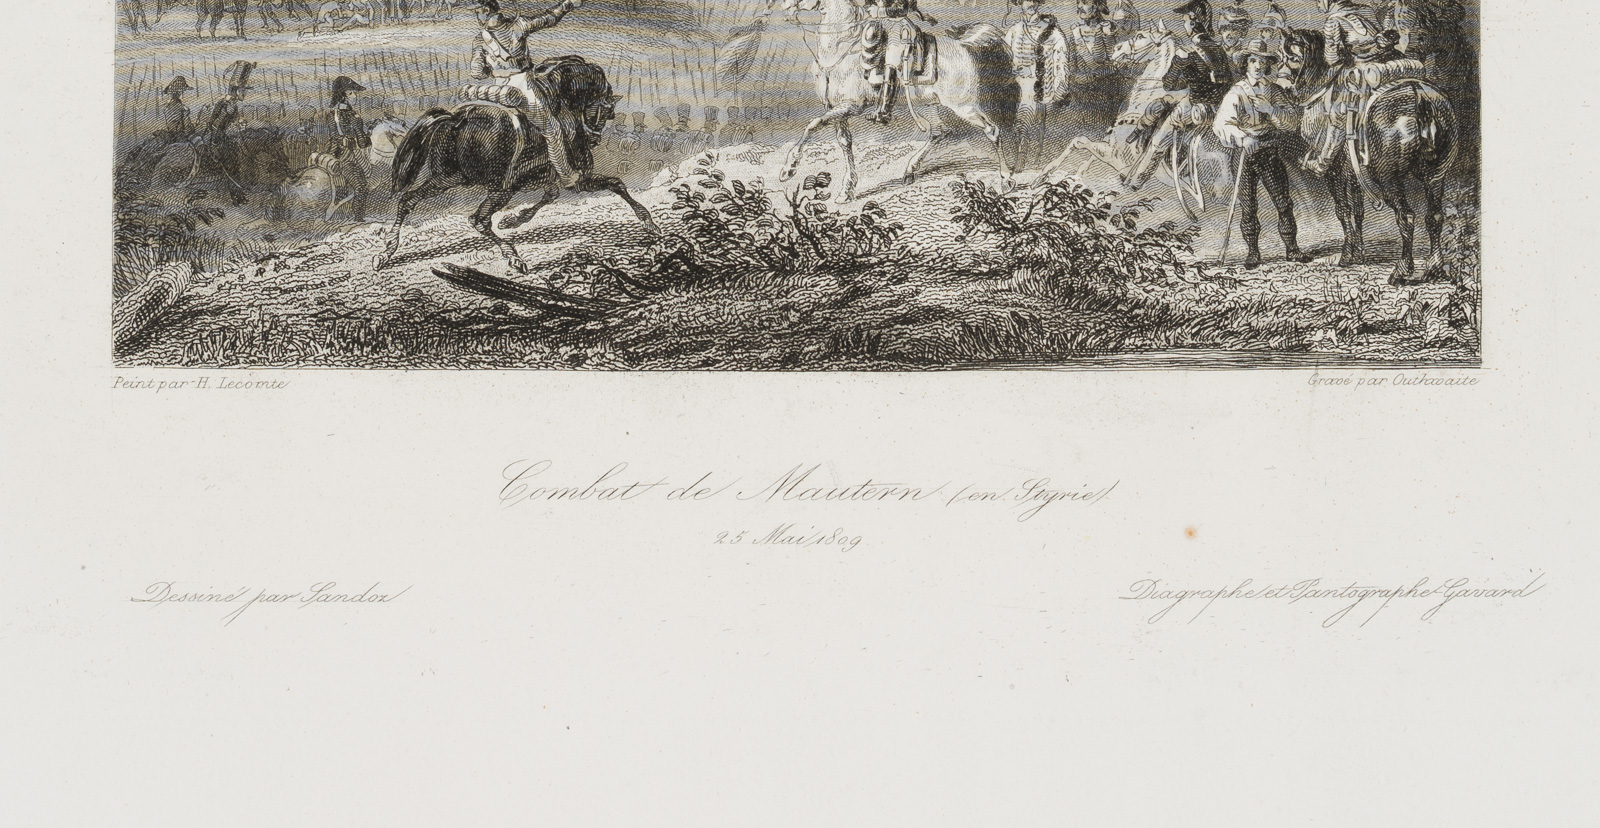 Peint par H. Lecomte
Gravé par Outhwaite
Combat de Mautern (en Styrie)
25 Mai 1809
Dessiné par Sandoz
Diagraphe et Pantographe Gavard